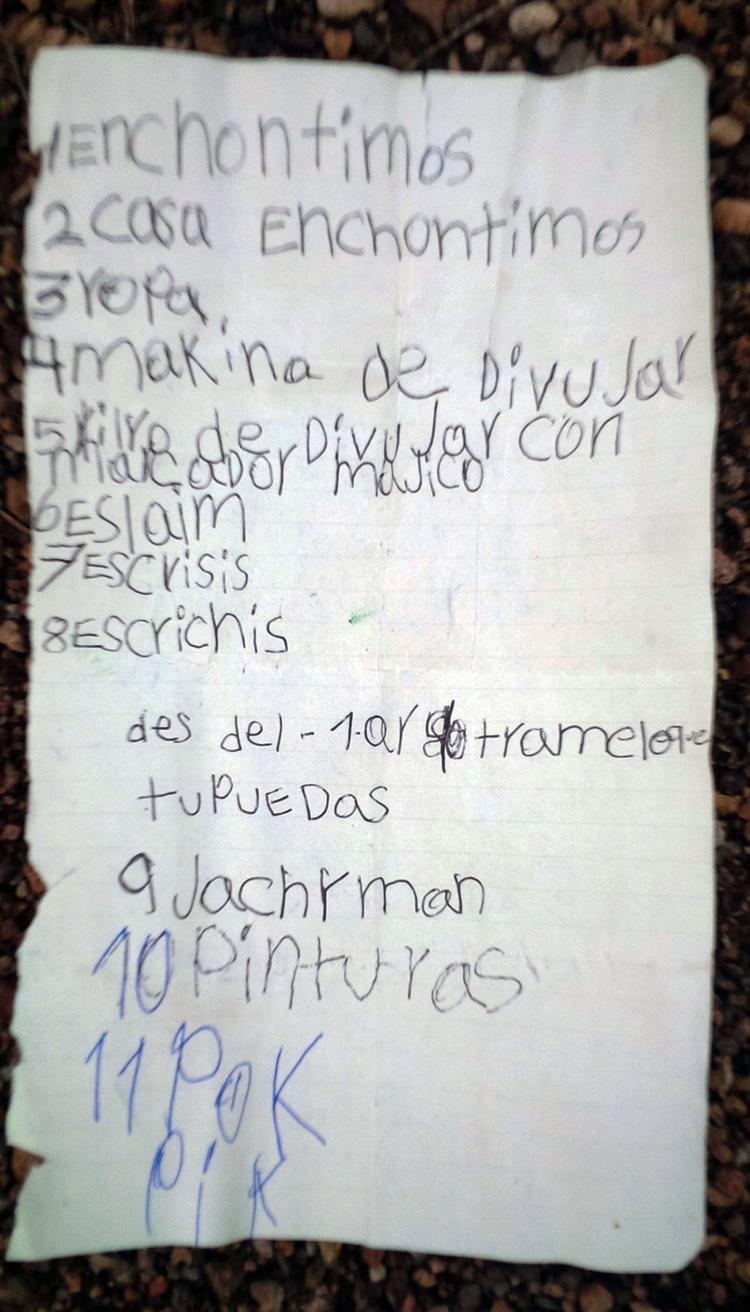 1Enchontimos
2casa Enchontimos
3ropa.
4makina de Divujar
5kilre de Divujar con
marcador majico
6Eslaim
7Escrisis
8Escrichis
des del-1.ar tramelo
tuPUEDas
9Jachrman
10Pinturas
11Pok
Pik